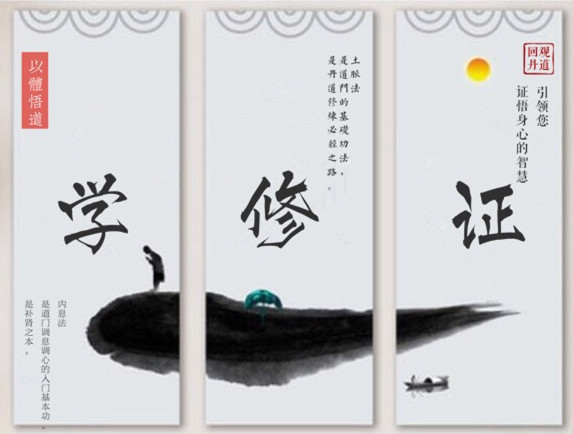 以體悟道
学
内息法
是道门调息调心的入门基本功。
是补肾之本。
土脈法
是道門的基礎功法，
是丹道修煉必經之路。
修
观道
回丹
引领您
证悟身心的智慧
证